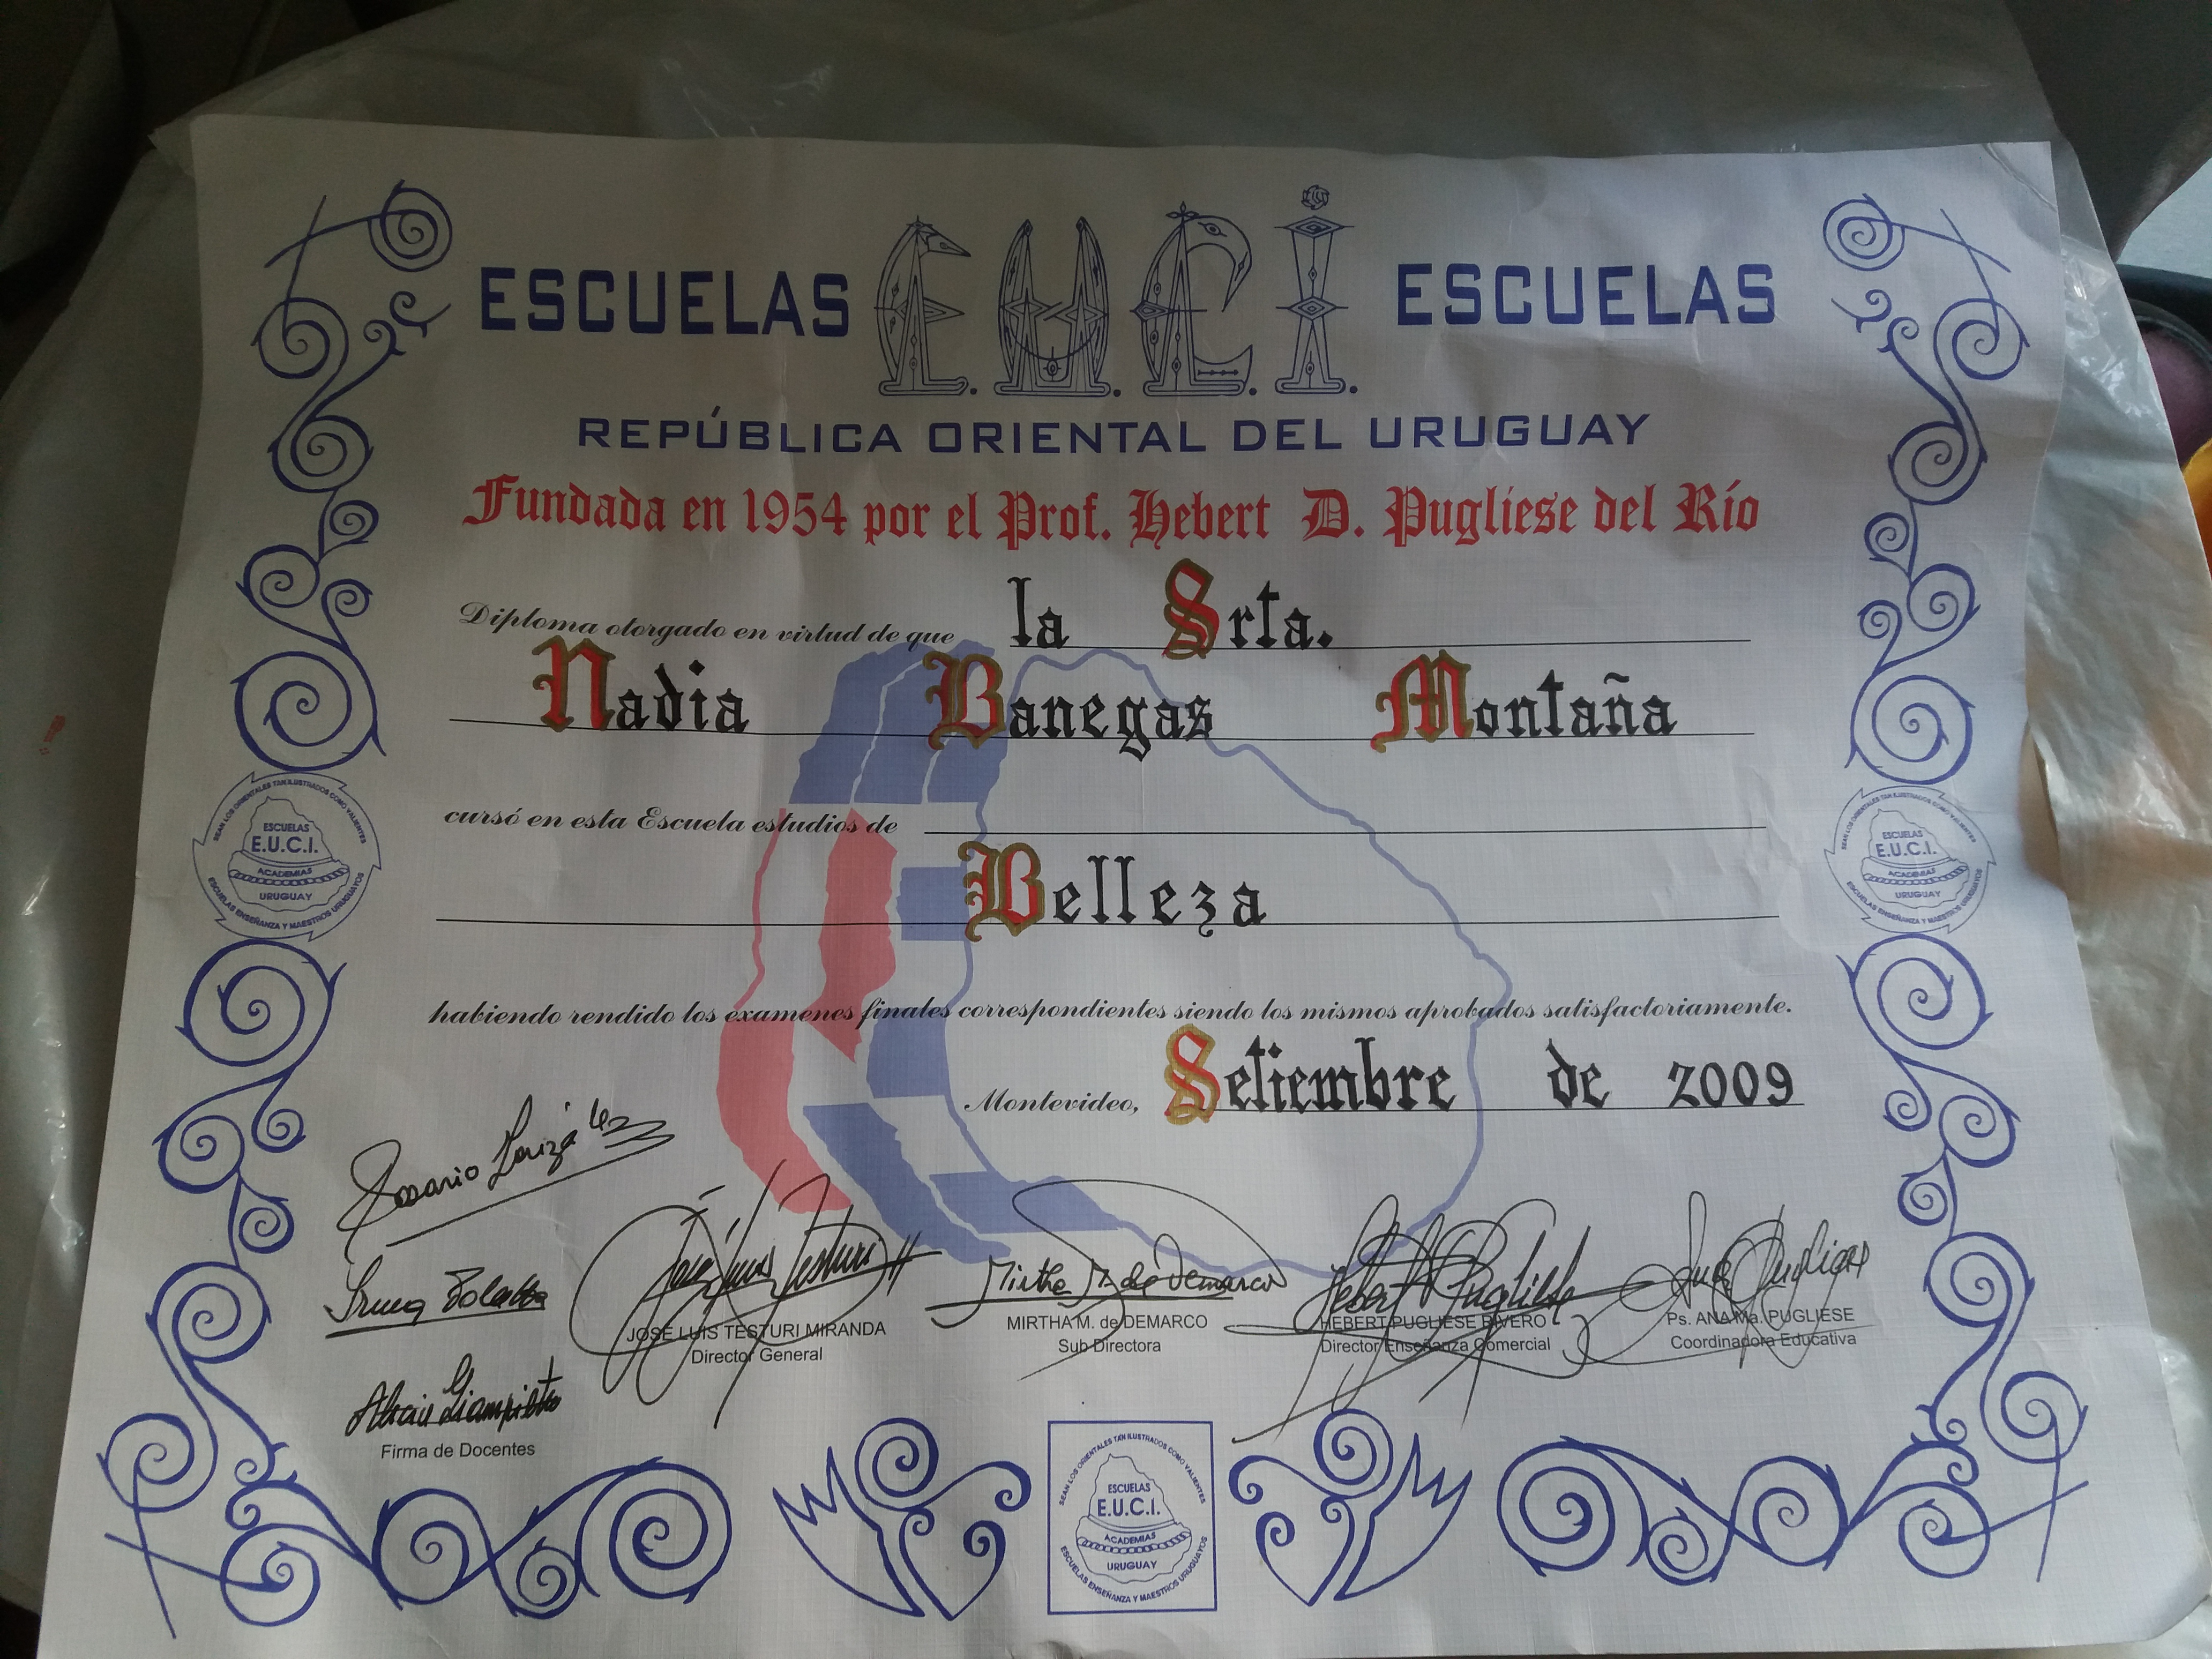 ESCUELAS E.U.C.I. ESCUELAS
REPÚBLICA ORIENTAL DEL URUGUAY
Fundada en 1954 por el Prof. Hebert D. Pugliese del Río
Diploma otorgado en virtud de que la Srta.
Nadia Banegas Montaña
cursó en esta Escuela estudios de
Belleza
habiendo rendido los examenes finales correspondientes siendo los mismos aprobados satisfactoriamente.
Montevideo, Setiembre de 2009
SEAN LOS ORIENTALES TAN ILUSTRADOS COMO VALIENTES
ESCUELAS
E.U.C.I.
ACADEMIAS
URUGUAY
ESCUELAS ENSEÑANZA Y MAESTROS URUGUAYOS
SEAN LOS ORIENTALES TAN ILUSTRADOS COMO VALIENTES
ESCUELAS
E.U.C.I.
ACADEMIAS
URUGUAY
ESCUELAS ENSEÑANZA Y MAESTROS URUGUAYOS
Rosario
Irma
José Luis Testuri
Mirtha M. de Demarco
Hebert Pugliese
Ana Pugliese
JOSÉ LUIS TESTURI MIRANDA
Director General
MIRTHA M. de DEMARCO
Sub Directora
HEBERT PUGLIESE RIVERO
Director Enseñanza Comercial
Ps. ANA Ma. PUGLIESE
Coordinadora Educativa
Firma de Docentes
SEAN LOS ORIENTALES TAN ILUSTRADOS COMO VALIENTES
ESCUELAS
E.U.C.I.
ACADEMIAS
URUGUAY
ESCUELAS ENSEÑANZA Y MAESTROS URUGUAYOS